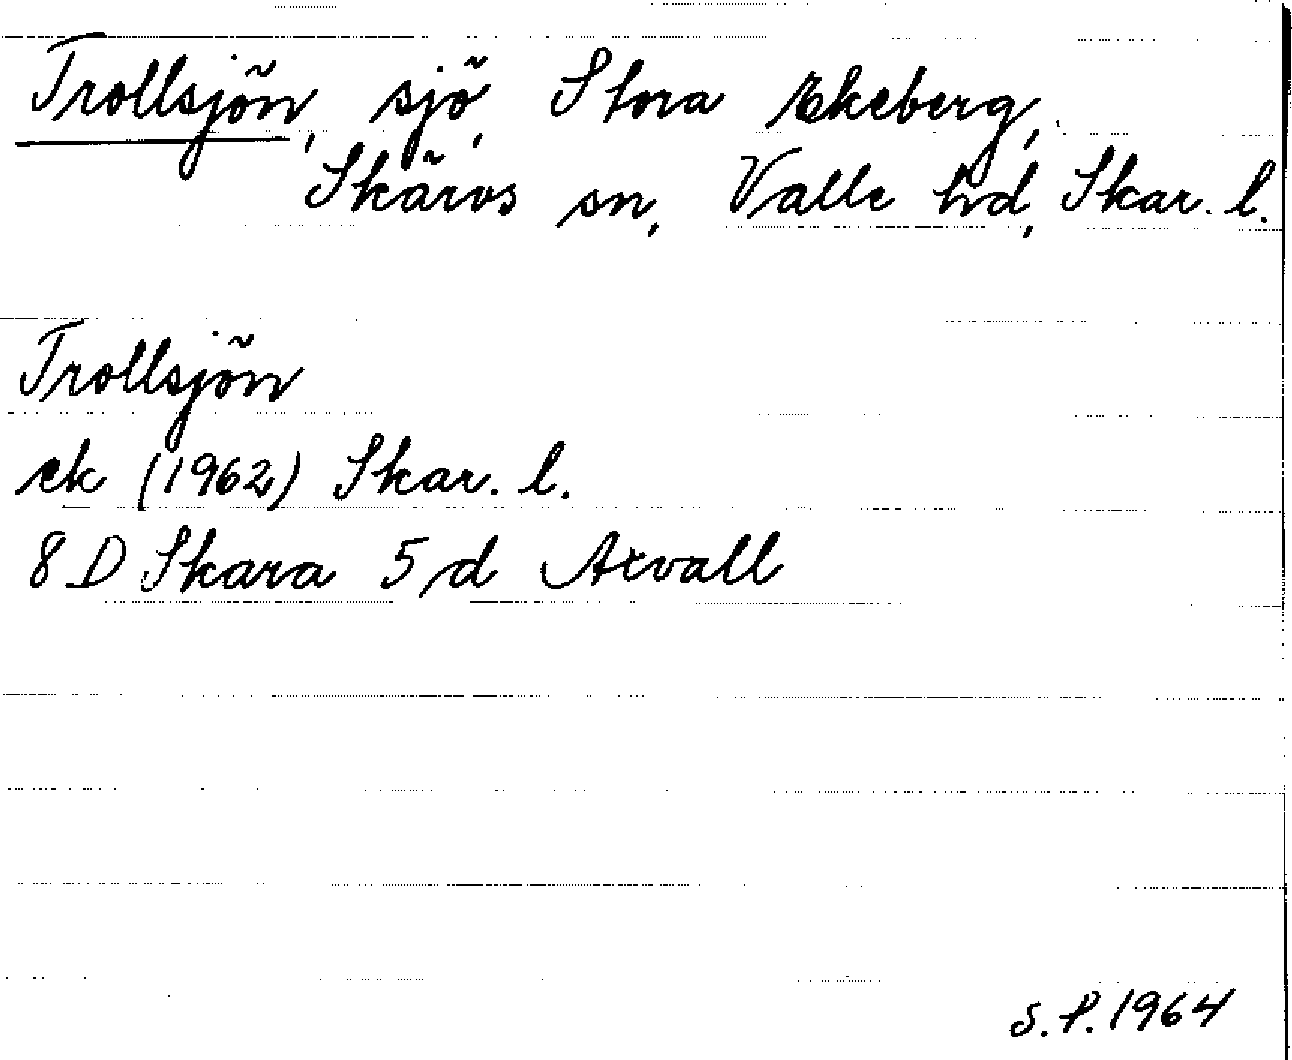 Trollsjön, sjö, Stora Ekeberg,
Skärvs sn, Valle hd, Skar. l.
Trollsjön
ek (1962) Skar. l.
8 D Skara 5 d Axvall
S.P. 1964